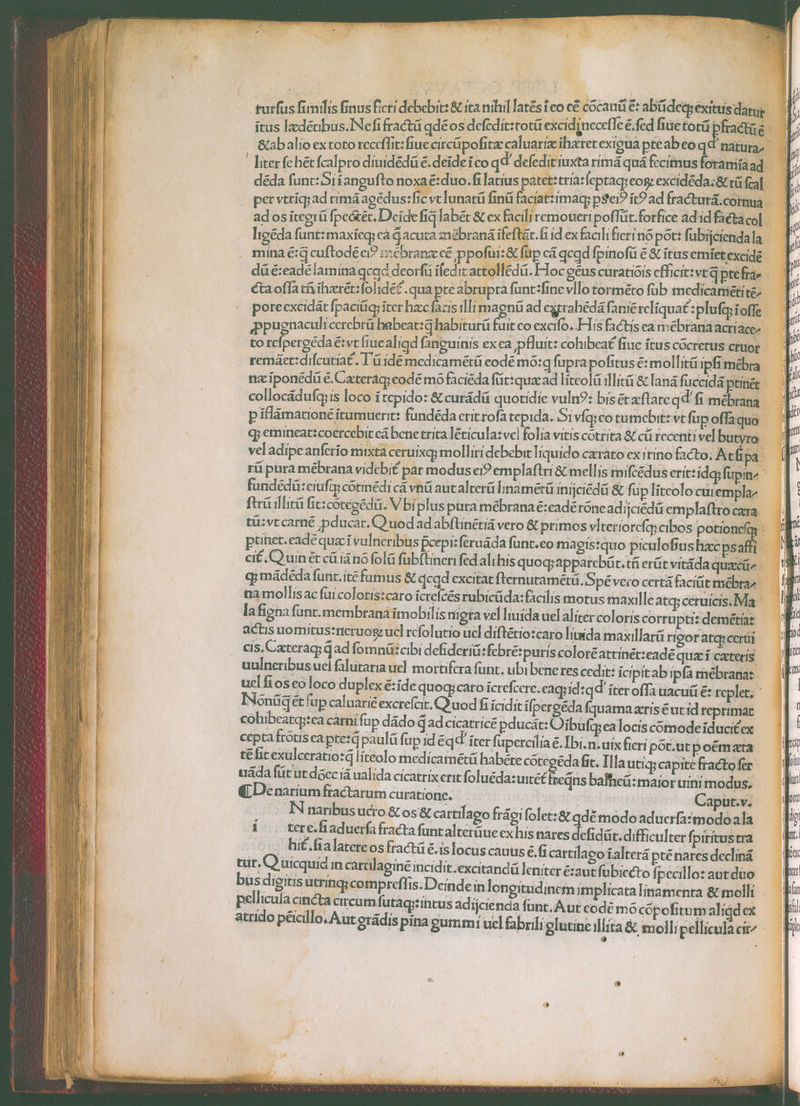 rurſus ſimilis ſinus fieri debebit: & ita nihil latēs ī eo cē cōcauū ē: abūdeq; exitus datur
itus lædētibus. Ne ſi fractū qdē os deſedit: totū excidi neceſſe ē. ſed ſiue totū pfractū ē
& ab alio ex toto receſſit: ſiue circūpoſitæ caluariæ īhæret exigua pte ab eo qd' natura-
liter ſe hēt ſcalpro diuidēdū ē. deīde ī eo qd' deſedit iuxta rimā quā fecimus foramīa ad
dēda ſunt: Si ī anguſto noxa ē: duo. ſi latius patet: tria: ſeptaq; eoꝝ excidēda: & tū ſcal
per vtriq; ad rimā agēdus: ſic vt lunatū ſinū faciat: imaq; ps ei⁹ it⁹ ad fracturā. cornua
ad os ītegrū ſpectēt. Deīde ſi q̄ labēt & ex facili remoueri poſſūt. forfice ad id facta col
ligēda ſunt: maxīeq; ea q̄ acuta mēbranā īfeſtāt. ſi id ex facili fieri nō pōt: ſubijcienda la
mina ē: q̄ cuſtodē ei⁹ mēbranæ cē ppoſui: & ſup eā qcqd ſpinoſū ē & ītus emīet excidē
dū ē: eadē lamina qcqd deorſū īſedit attollēdū. Hoc gēus curatiōis efficit: vt q̄ pte fra-
cta oſſa tn̄ īhærēt: ſolidēt᷑. qua pte abrupta ſunt: ſine vllo tormēto ſub medicamēti tē-
pore excidāt ſpaciūq; īter hæc ſatis illi magnū ad extrahēdā ſaniē relīquat᷑: pluſq; ī oſſe
ppugnaculi cerebrū habeat: q̄ habiturū fuit eo exciſo. His factis ea mēbrana acri ace-
to reſpergēda ē: vt ſiue aliqd ſanguinis ex ea pfluit: cohibeat᷑ ſiue ītus cōcretus cruor
remāet: diſcutiat᷑. Tū idē medicamētū eodē mō: q ſupra poſitus ē: mollitū ipſi mēbra
næ īponēdū ē. Cæteraq; eodē mō faciēda ſūt: quæ ad līteolū illitū & lanā ſuccidā ptinēt
collocādusq; is loco ī tepido: & curādū quotidie vuln⁹: bis ēt æſtate qd' ſi mēbrana
p īflāmationē ītumuerit: fundēda erit roſa tepida. Si vſq; eo tumebit: vt ſup oſſa quo
q; emineat: coercebit eā bene trita lēticula: vel folia vitis cōtrita & cū recenti vel butyro
vel adipe anſerīo mixta ceruixq; molliri debebit liquido cærato ex irino facto. At ſi pa
rū pura mēbrana videbit᷑ par modus ei⁹ emplaſtri & mellis miſcēdus erit: idq; ſupin-
fundēdū: eiuſq; cōtinēdi cā vnū aut alterū linamētū inijciēdū & ſup līteolo cui empla-
ſtrū illitū ſit: cōtegēdū. Vbi plus pura mēbrana ē: eadē rōne adijciēdū emplaſtro cæra
tū: vt carnē pducat. Quod ad abſtinētiā vero & primos vlterioreſq; cibos potioneſq;
ptinet. eadē quæ ī vulneribus p̄cepi: ſeruāda ſunt. eo magis: quo piculoſius hæc ps affi
cit᷑. Quin ēt cū iā nō ſolū ſubſtineri ſed ali his quoq; apparebūt. tn̄ erūt vitāda quæcū-
q; mādēda ſunt. itē fumus & qcqd excitat ſternutamētū. Spē vero certā faciūt mēbra-
na mollis ac ſui coloris: caro īcreſcēs rubicūda: facilis motus maxille atq; ceruicis. Ma
la ſigna ſunt. membrana īmobilis nigra vel liuida uel aliter coloris corrupti: demētia:
actis uomitus: neruoꝝ uel reſolutio uel diſtētio: caro liuida maxillarū rigor atq; cerui
cis. Cæteraq; q̄ ad ſomnū: cibi deſideriū: febrē: puris colorē attinēt: eadē quæ ī cæteris
uulneribus uel ſalutaria uel mortifera ſunt. ubi bene res cedit: īcipit ab ipſa mēbrana:
uel ſi os eo loco duplex ē: īde quoq; caro īcreſcere. eaq; id: qd' īter oſſa uacuū ē: replet.
Nōnūq̄ ēt ſup caluariē excreſcit. Quod ſi īcidit īſpergēda ſquama æris ē ut id reprimat
cohibeatq;: ea carni ſup dādo q̄ ad cicatricē pducāt: Oībusq; ea locis cōmode īducit᷑ ex
cepta frōtis ea pte: q̄ paulū ſup id ē qd' īter ſupercilia ē. Ibi. n. uix fieri pōt. ut p oēm æta
tē ſit exulceratio: q̄ līteolo medicamētū habēte cōtegēda ſit. Illa utiq; capite fracto ſer
uāda ſūt ut dōec iā ualida cicatrix erit ſol uēda: uitēt᷑ freqns balneū: maior uini modus.
¶ De narium fractarum curatione. Caput. v.
i N naribus uero & os & cartilago frāgi ſolet: & qdē modo aduerſa: modo a la
tere. ſi aduerſa fracta ſunt alterūue ex his nares deſidūt. difficulter ſpiritus tra
hit᷑. ſi a latere os fractū ē. is locus cauus ē. ſi cartilago ī alterā ptē nares declinā
tur. Quicquid in cartilaginē incidit. excitandū leniter ē: aut ſubiecto ſpecillo: aut duo
bus digitis utrinq; compreſſis. Deinde in longitudinem implicata linamenta & molli
pellicula cincta circum ſutaq;: intus adijcienda ſunt. Aut eodē mō cōpoſitum aliqd ex
arrido peīcillo. Aut grādis pina gummi uel fabrili glutine illita & molli pellicula cir-